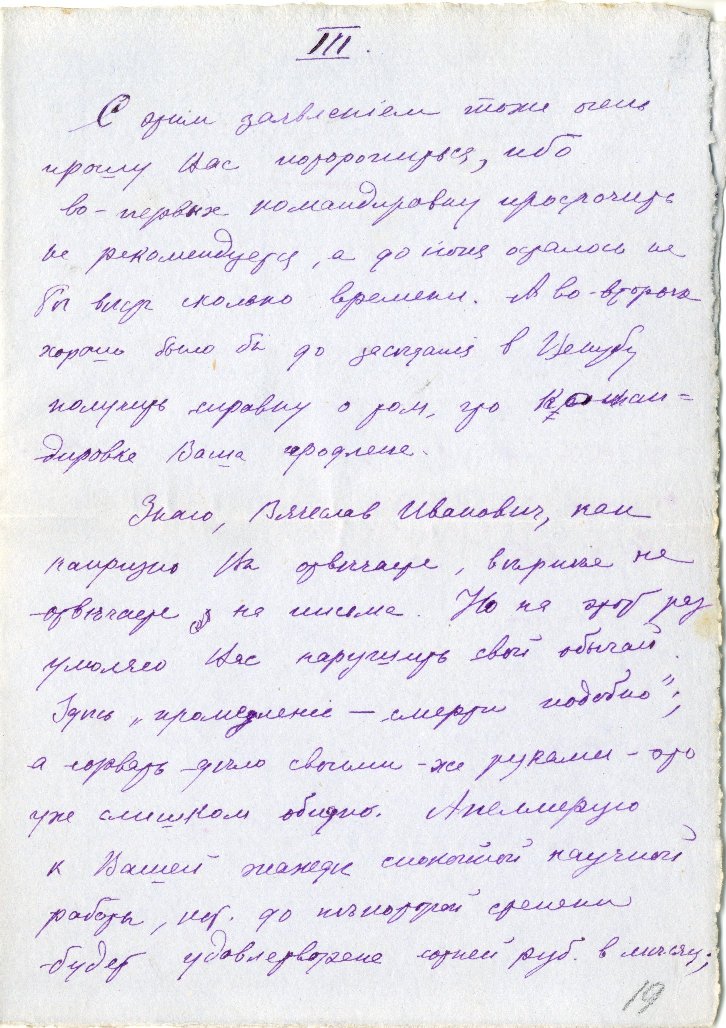 III.
С этим заявлением тоже очень
прошу Вас поторопиться, ибо
во-первых командировку просрочить
не рекомендуется, а до іюня осталось не
Бог вест сколько времени. А во-вторых
хорошо было бы до заседания в Цекубу
получить справку о том, что коман=
дировка Ваша продлена.
Знаю, Вячеслав Иванович, как
капризно Вы отвечаете, вернее не
отвечаете на письма. Но на этот раз
умоляю Вас нарушить свой обычай.
Здесь „промедленіе — смерти подобно";
а сорвать дело своими-же руками - это
уже слишком обидно. Апеллирую
к Вашей жажде спокойной научной
работы, кот. до некоторой степени
будет удовлетворена сотней руб. в месяц;
19